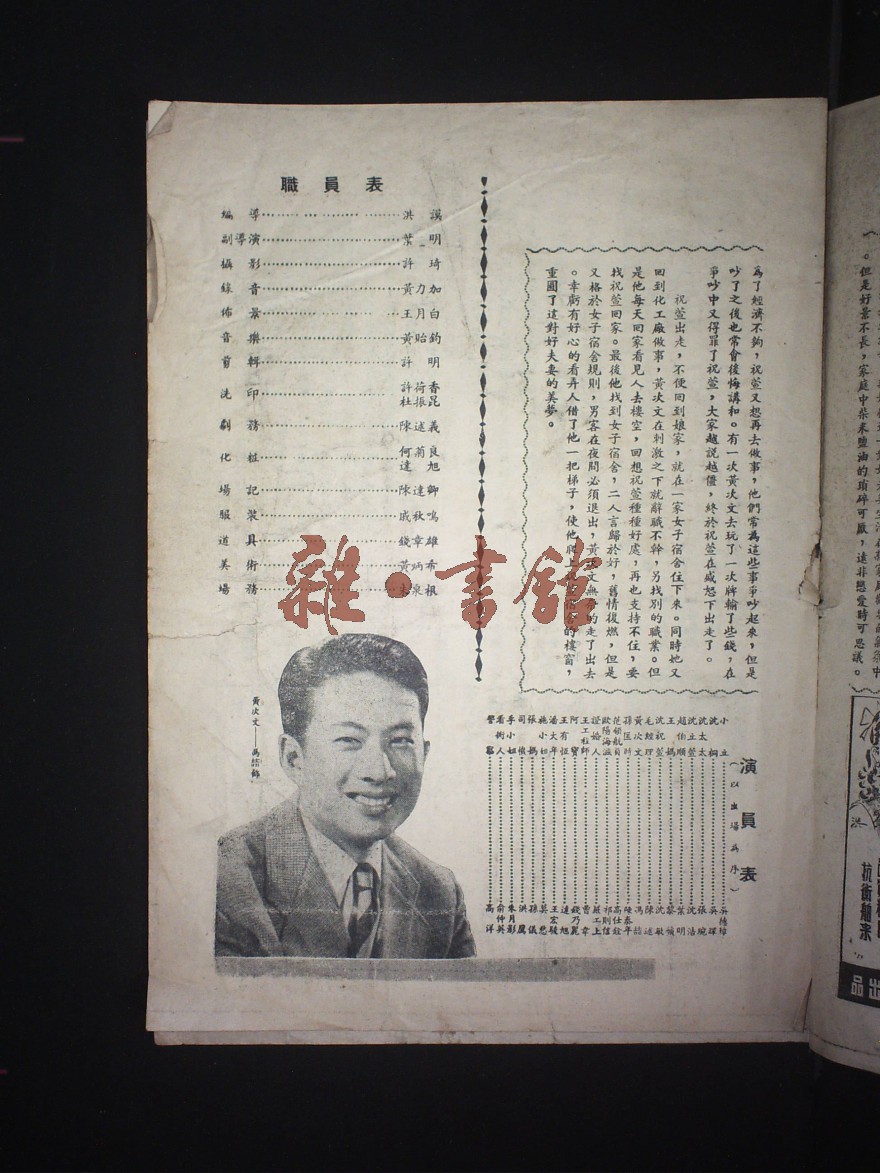 為了經濟不夠，祝萱又想再去做事，他們常為這些事爭吵起來，但是
吵了之後也常會後悔講和。有一次黃次文去玩了一次牌輸了些錢，在
爭吵中又得罪了祝萱，大家越説越僵，終於祝萱在盛怒下出走了。
祝萱出走，不便回到娘家，就在一家女子宿舍住下來。同時她又
回到化工廠做事，黃次文在刺激之下就辭職不幹，另找別的職業。但
是他每天回家看見人去樓空，回想祝萱種種好處，再也支持不住，要
找祝萱回家。最後他找到女子宿舍，二人言歸於好，舊情復燃，但是
又格於女子宿舍規則，男客在夜間必須退出，黃次文無奈的走了出去
。幸虧有好心的看弄人借了他一把梯子，使他爬上的樓窗，
重圓了這對好夫妻的美夢。
職員表
編導 洪謨
副導演 葉明
攝影 許琦
錄音 黃力加
佈景 王月白
音樂 黃貽鈞
剪輯 許明
洗印 許荷香 杜振昆
劇務 陳述義
化粧 何菊良 達旭
場記 陳達卿
服裝 戚秋鳴
道具 錢章雄
美術 黃炳希
場務 泉根
雜·書館
黃次文——馮喆飾
演員表
（以出場為序）
小立 吳德培
沈桐 吳琛
沈太太 張琬
沈立萱 沈浩
趙伯順 葉明
王媽
沈祝萱 沈敏
毛經理 陳述
黃次文 馮喆
孫匡時 陳泰年
范領航員 高仕銓
歐陽海溫 祁則信
證婚人
王工杜師 曹韋
阿寶 錢乃麗
王有恆 達旭
潘大年 王宏駿
張媽 孫儀
司儀 洪鷹
李小姐 朱月影
看衖人 俞仲英
警察 高洋
。但是好景不長，家庭中柴米鹽油的瑣碎可厭，遠非戀愛時可思議。
抗衡舶來
出品